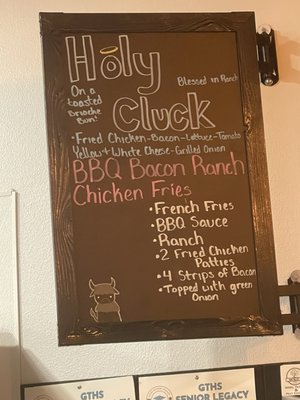 Holy
On a
toasted
brioche
Bun!
Blessed in Ranch
Cluck
• Fried Chicken-Bacon-Lettuce-Tomato
Yellow + White Cheese-Grilled Onion
BBQ Bacon Ranch
Chicken Fries
• French Fries
• BBQ Sauce
• Ranch
• 2 Fried Chicken
Patties
• 4 Strips of Bacon
• Topped with green
Onion
GTHS
GTHS
SENIOR LEGACY